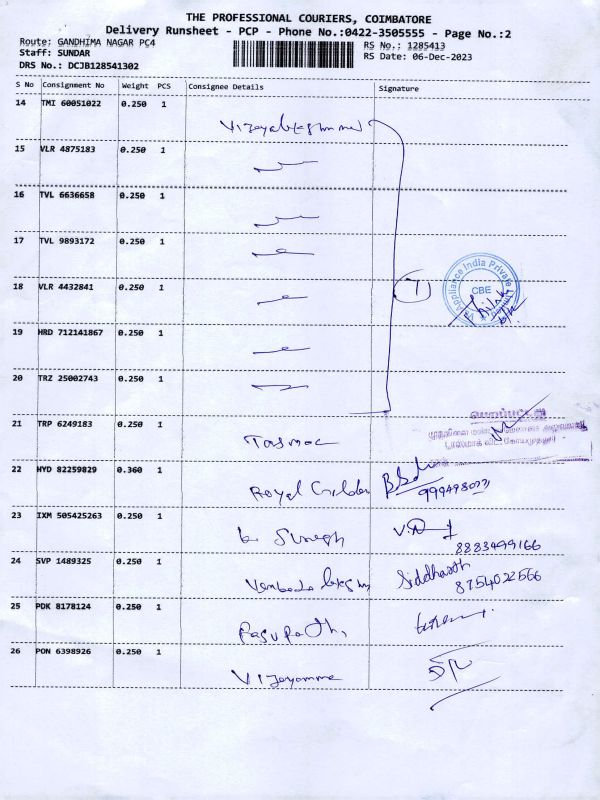 THE PROFESSIONAL COURIERS, COIMBATORE
Delivery Runsheet - PCP - Phone No.:0422-3505555 - Page No.:2
Route: GANDHIMA NAGAR PC4
RS No.: 1285413
Staff: SUNDAR
RS Date: 06-Dec-2023
DRS No.: DCJB128541302
S No Consignment No Weight PCS Consignee Details Signature
14 TMI 60051022 0.250 1
15 VLR 4875183 0.250 1
16 TVL 6636658 0.250 1
17 TVL 9893172 0.250 1
18 VLR 4432841 0.250 1 7
Appliance India Private
CBE
19 HRD 712141867 0.250 1
20 TRZ 25002743 0.250 1
21 TRP 6249183 0.250 1 Tasmac
22 HYD 82259829 0.360 1 Royal
23 IXM 505425263 0.250 1
8883499166
24 SVP 1489325 0.250 1 Siddharth
8754022566
25 PDK 8178124 0.250 1 Pasupathi
26 PON 6398926 0.250 1 Vijayamma